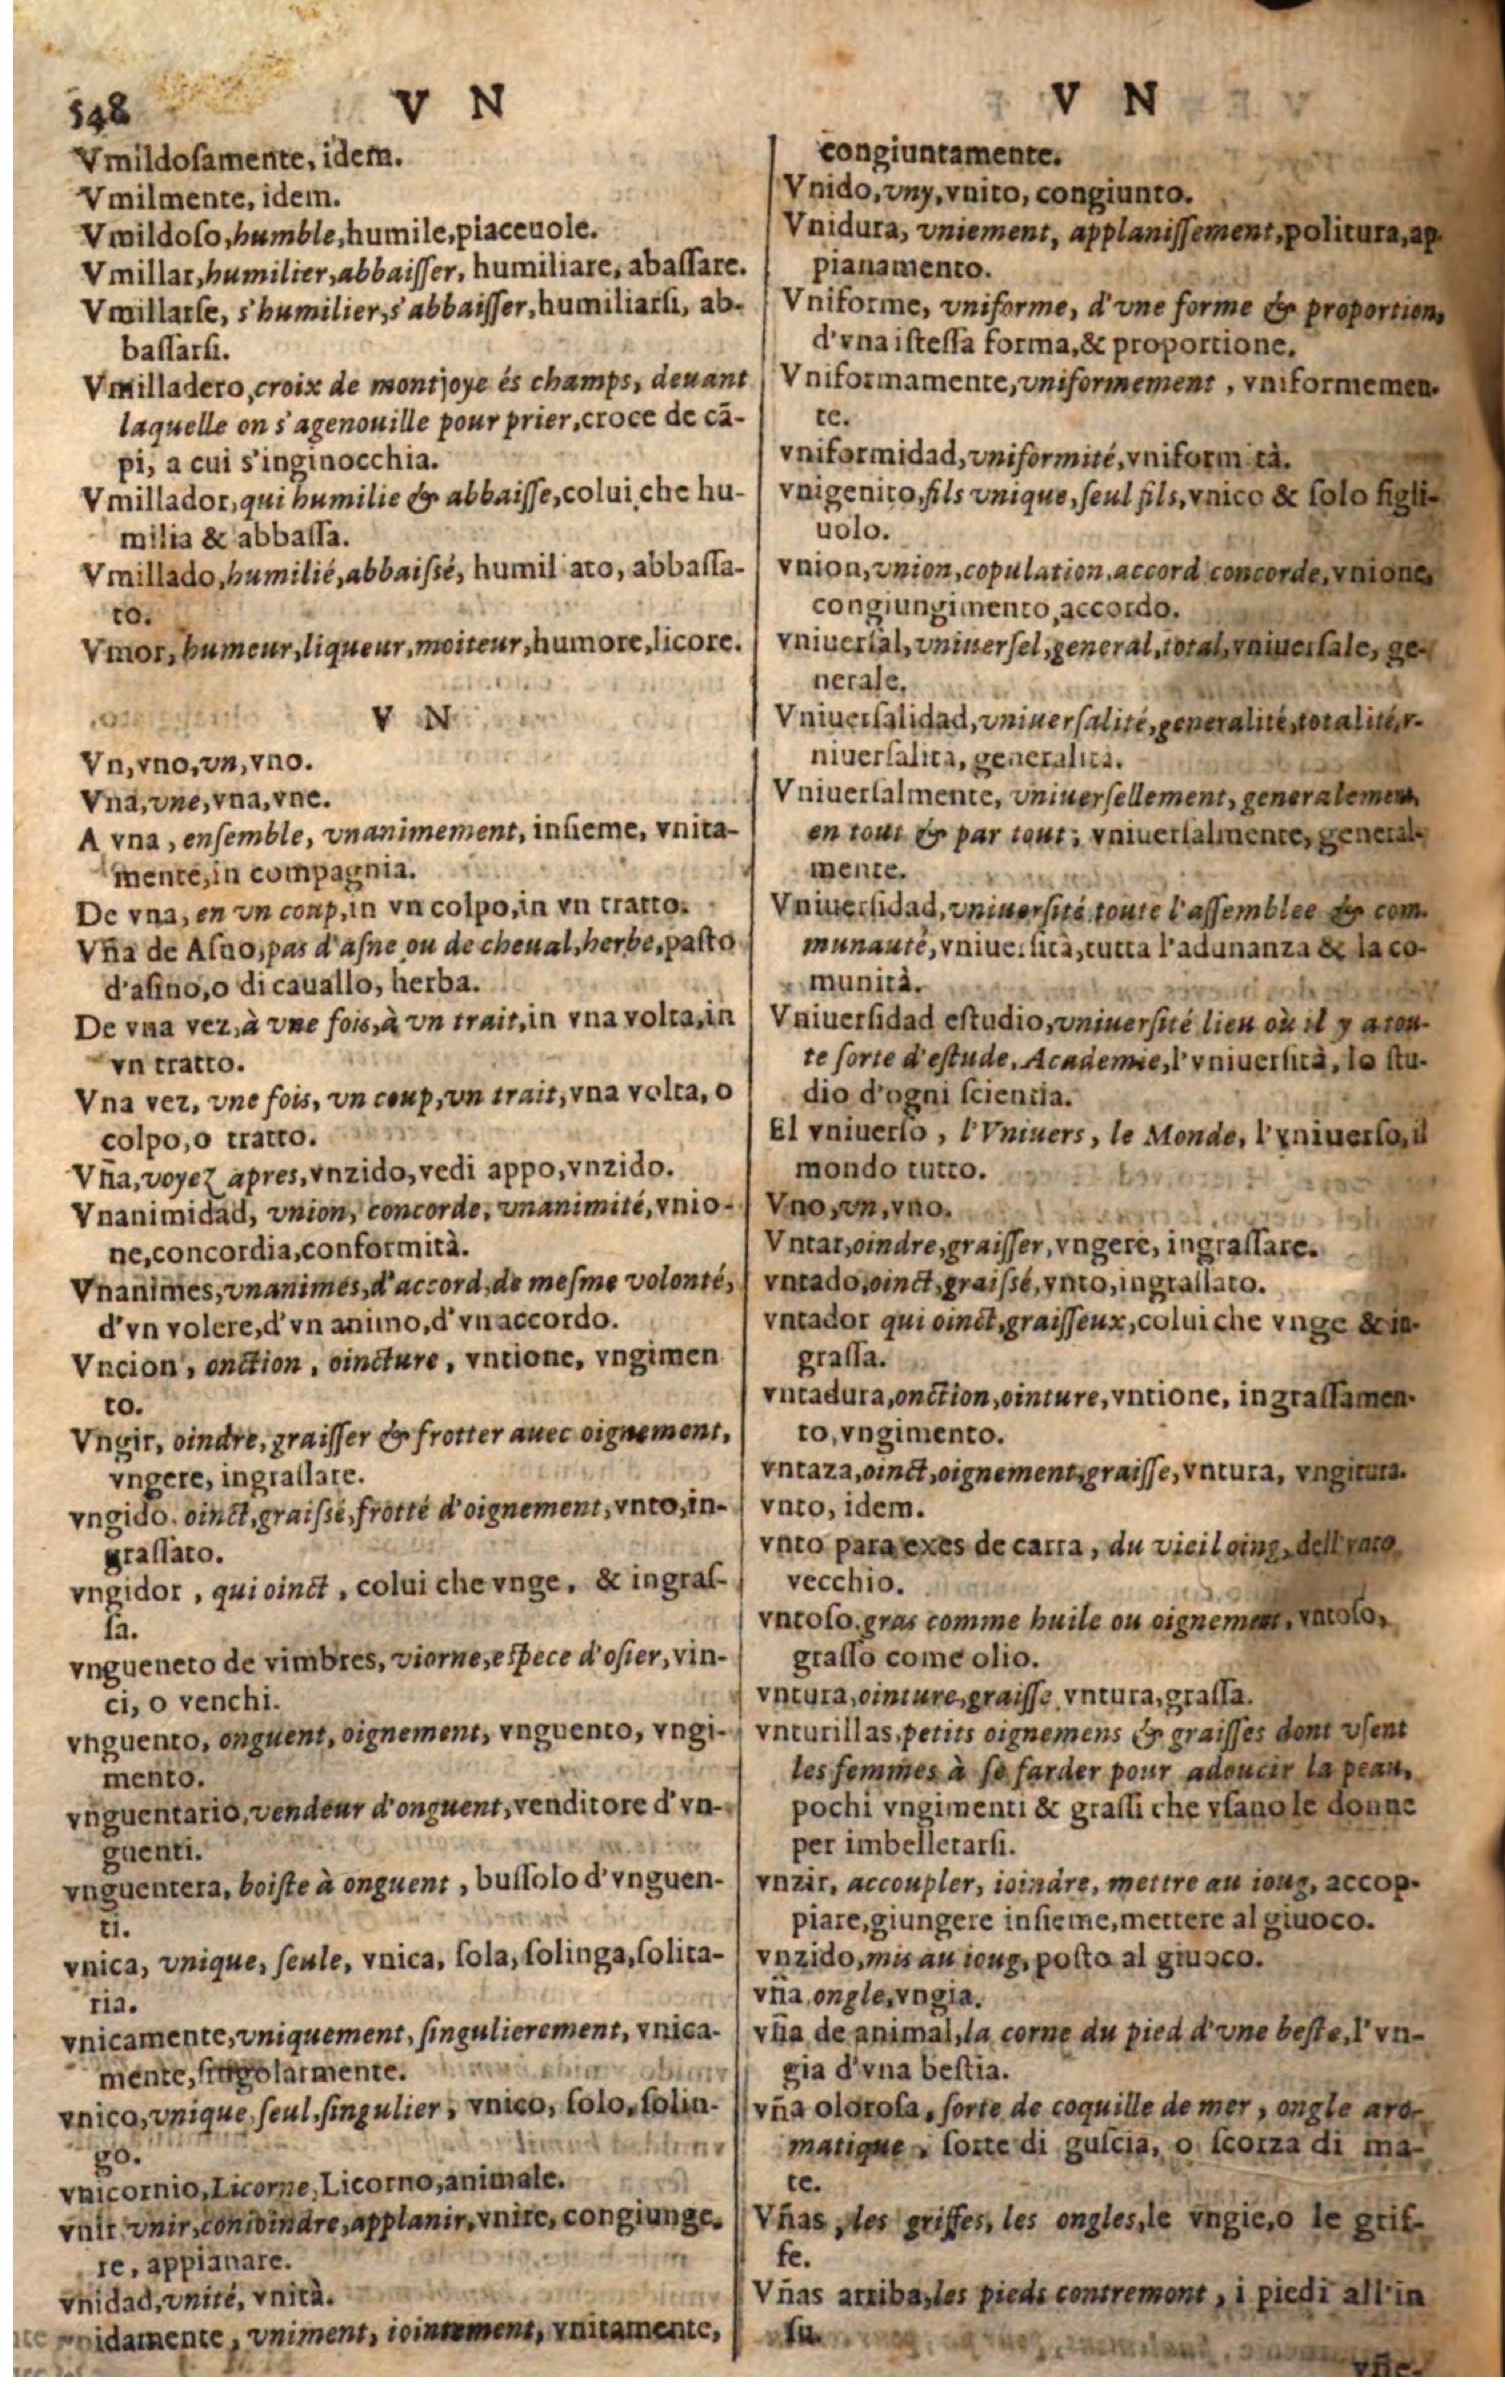 548
V N
Vmildoſamente, idem.
Vmilmente, idem.
Vmildoſo, humble, humile, piaceuole.
Vmillar, humilier, abbaiſſer, humiliare, abaſſare.
Vmillarſe, s'humilier, s'abbaiſſer, humiliarſi, ab-
baſſarſi.
Vmilladero, croix de montjoye és champs, deuant
laquelle on s'agenouille pour prier, croce de cā-
pi, a cui s'inginocchia.
Vmillador, qui humilie & abbaiſſe, colui che hu-
milia & abbaſſa.
Vmillado, humilié, abbaiſſé, humil ato, abbaſſa-
to.
Vmor, humeur, liqueur, moiteur, humore, licore.
V N
Vn, vno, vn, vno.
Vna, vne, vna, vne.
A vna, enſemble, vnanimement, inſieme, vnita-
mente, in compagnia.
De vna, en vn coup, in vn colpo, in vn tratto.
Vña de Aſno, pas d'aſne ou de cheual, herbe, paſto
d'aſino, o di cauallo, herba.
De vna vez, à vne fois, à vn trait, in vna volta, in
vn tratto.
Vna vez, vne fois, vn coup, vn trait, vna volta, o
colpo, o tratto.
Vña, voyez apres, vnzido, vedi appo, vnzido.
Vnanimidad, vnion, concorde, vnanimité, vnio-
ne, concordia, conformità.
Vnanimes, vnanimes, d'accord, de meſme volonté,
d'vn volere, d'vn animo, d'vn accordo.
Vncion, onction, oincture, vntione, vngimen
to.
Vngir, oindre, graiſſer & frotter auec oignement,
vngere, ingraſſare.
vngido. oinct, graiſſé, frotté d'oignement, vnto, in-
graſſato.
vngidor, qui oinct, colui che vnge, & ingraſ-
ſa.
vngueneto de vimbres, viorne, eſpece d'oſier, vin-
ci, o venchi.
vnguento, onguent, oignement, vnguento, vngi-
mento.
vnguentario, vendeur d'onguent, venditore d'vn-
guenti.
vnguentera, boiſte à onguent, buſſolo d'vnguen-
ti.
vnica, vnique, ſeule, vnica, ſola, ſolinga, ſolita-
ria.
vnicamente, vniquement, ſingulierement, vnica-
mente, ſingolarmente.
vnico, vnique, ſeul, ſingulier, vnico, ſolo, ſolin-
go.
vnicornio, Licorne, Licorno, animale.
vnir, vnir, conioindre, applanir, vnire, congiunge-
re, appianare.
vnidad, vnité, vnità.
vnidamente, vniment, iointement, vnitamente,
V N
congiuntamente.
Vnido, vny, vnito, congiunto.
Vnidura, vniement, applaniſſement, politura, ap-
pianamento.
Vniforme, vniforme, d'vne forme & proportion,
d'vna iſteſſa forma, & proportione.
Vniformamente, vniformement, vniformemen-
te.
vniformidad, vniformité, vniform tà.
vnigenito, fils vnique, ſeul fils, vnico & ſolo figli-
uolo.
vnion, vnion, copulation, accord concorde, vnione,
congiungimento, accordo.
vniuerſal, vniuerſel, general, total, vniuerſale, ge-
nerale.
Vniuerſalidad, vniuerſalité, generalité, totalité, v-
niuerſalita, generalità.
Vniuerſalmente, vniuerſellement, generalement,
en tout & par tout, vniuerſalmente, general-
mente.
Vniuerſidad, vniuerſité, toute l'aſſemblee & com-
munauté, vniuerſità, tutta l'adunanza & la co-
munità.
Vniuerſidad eſtudio, vniuerſité lieu où il y a tou-
te ſorte d'eſtude, Academie, l'vniuerſità, lo ſtu-
dio d'ogni ſcientia.
El vniuerſo, l'Vniuers, le Monde, l'vniuerſo, il
mondo tutto.
Vno, vn, vno.
Vntar, oindre, graiſſer, vngere, ingraſſare.
vntado, oinct, graiſſé, vnto, ingraſſato.
vntador qui oinct, graiſſeux, colui che vnge & in-
graſſa.
vntadura, onction, ointure, vntione, ingraſſamen-
to, vngimento.
vntaza, oinct, oignement, graiſſe, vntura, vngitura.
vnto, idem.
vnto para exes de carra, du vieil oing, dell'vnto
vecchio.
vntoſo. gras comme huile ou oignement, vntoſo,
graſſo come olio.
vntura, ointure, graiſſe, vntura, graſſa.
vnturillas, petits oignemens & graiſſes dont vſent
les femmes à ſe farder pour adoucir la peau,
pochi vngimenti & graſſi che vſano le donne
per imbelletarſi.
vnzir, accoupler, ioindre, mettre au ioug, accop-
piare, giungere inſieme, mettere al giuoco.
vnzido, mis au ioug, poſto al giuoco.
vña ongle, vngia.
vña de animal, la corne du pied d'vne beſte, l'vn-
gia d'vna beſtia.
vña oloroſa, ſorte de coquille de mer, ongle aro-
matique, ſorte di guſcia, o ſcorza di ma-
re.
Vñas, les griffes, les ongles, le vngie, o le grif-
fe.
Vñas arriba, les pieds contremont, i piedi all'in
ſu.
vñe-